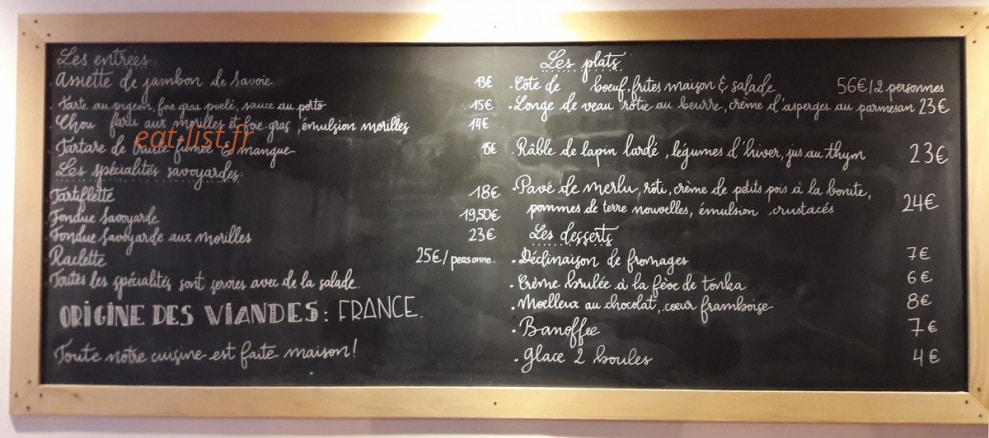 Les entrées
Assiette de jambon de Savoie 13€
Tarte au pigeon, foie gras poêlé, sauce au porto 15€
Chou farci aux morilles et foie gras, émulsion morilles 14€
eat-list.fr
Tartare de truite fumée & mangue 15€
Les spécialités savoyardes
Tartiflette 18€
Fondue Savoyarde 19,50€
Fondue Savoyarde aux morilles 23€
Raclette 25€/personne
Toutes les spécialités sont servies avec de la salade
ORIGINE DES VIANDES : FRANCE.
Toute notre cuisine est faite maison!
Les plats
.Côte de boeuf, frites maison & salade 56€/2 personnes
.Longe de veau rôtie au beurre, crème d'asperges au parmesan 23€
.Râble de lapin lardé, légumes d'hiver, jus au thym 23€
.Pavé de merlu, rôti, crème de petits pois à la bonite,
pommes de terre nouvelles, émulsion crustacés 24€
Les desserts
.Déclinaison de fromages 7€
.Crème brulée à la fève de tonka 6€
.Moelleux au chocolat, cœur framboise 8€
.Banoffee 7€
.Glace 2 boules 4€